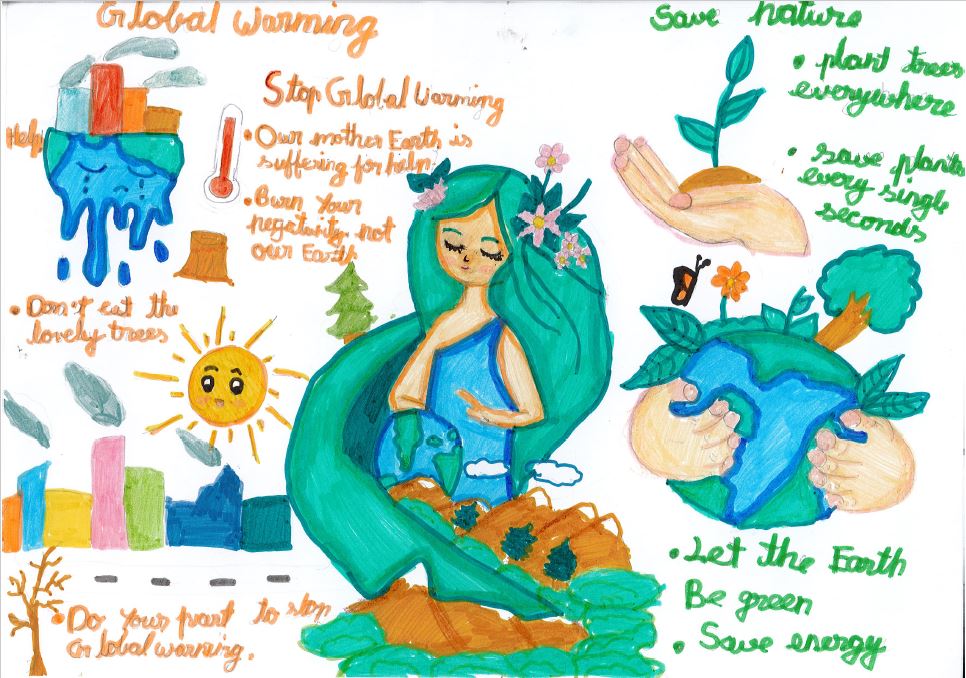 Global Warming
Help!
Stop Global Warming
• Our mother Earth is
suffering for help.
• Burn your
negativity not
our Earth
• Don't eat the
lovely trees
• Do your part to stop
Global warning.
Save nature
• plant trees
everywhere
• save plants
every single
seconds
• Let the Earth
Be green
• Save energy